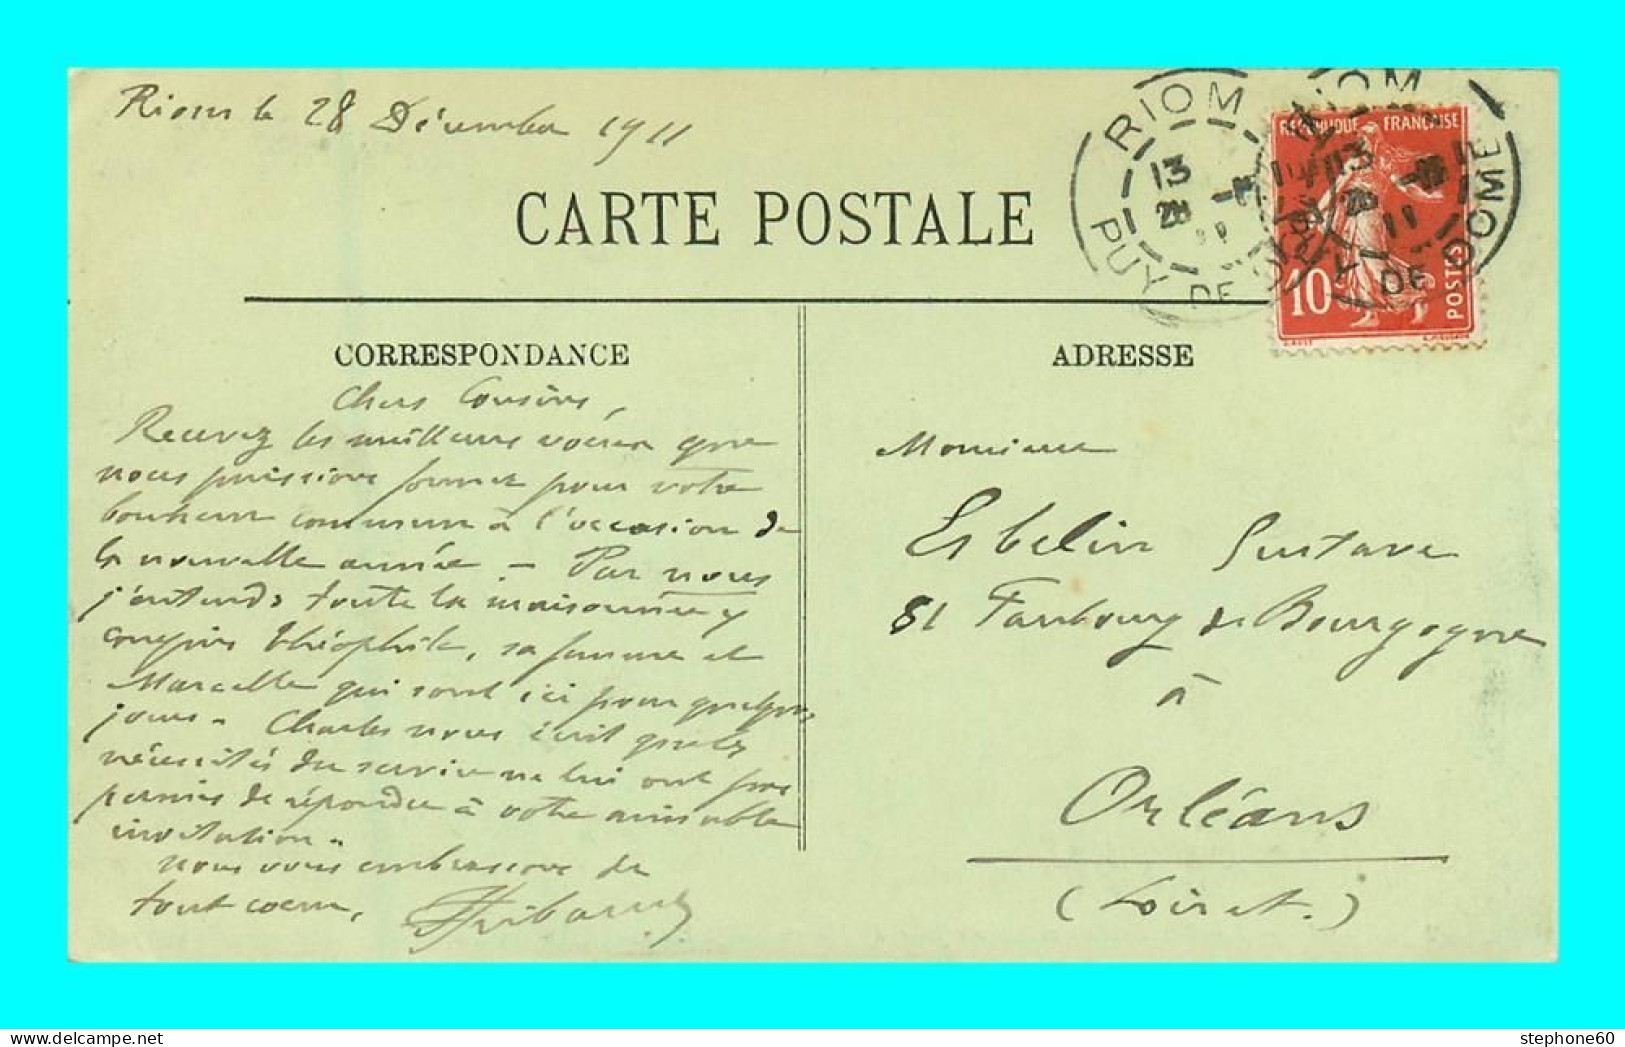 Riom le 28 Décembre 1911
RIOM
PUY DE DOME
13
28
RIOM
13
28
11
PUY DE DOME
REPUBLIQUE FRANÇAISE
10c
POSTES
CARTE POSTALE
CORRESPONDANCE
Chers Cousins,
Recevez les meilleurs vœux que
nous puissions former pour votre
bonheur commun à l'occasion de
la nouvelle année. - Par nous
j'entends toute la maisonnée y
compris Théophile, sa femme et
Marcelle qui sont ici pour quelques
jours. Charles nous écrit que les
nécessités du service ne lui ont pas
permis de répondre à votre aimable
invitation.
Nous vous embrassons de
tout cœur,
ADRESSE
Monsieur
Esbelin Gustave
81 Faubourg de Bourgogne
à
Orléans
(Loiret.)
stephone60